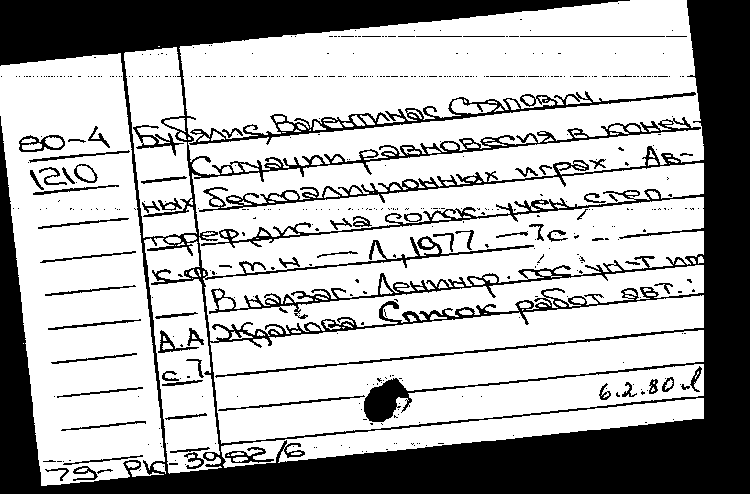 80-4 Бубялис, Валентинас Стяпович.
1210 Ситуации равновесия в конеч-
ных бескоалиционных играх : Ав-
тореф. дис. на соиск. учен. степ.
к.ф.-м.н. — Л., 1977. — 7с.
В надзаг.: Ленингр. гос. ун-т им
А.А Жданова. Список работ авт.:
с.7.
6.2.80
79-РК-3982/6